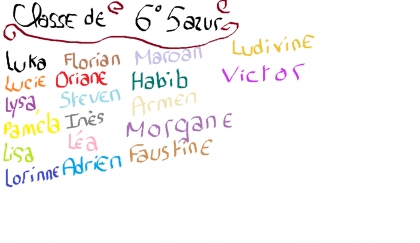 Classe de 6° 5 azur
Luka Florian Maroan Ludivine
Lucie Oriane Habib Victor
Lysa Steven Armen
Paméla Inès Morgane
Lisa Léa Faustine
Lorinne Adrien